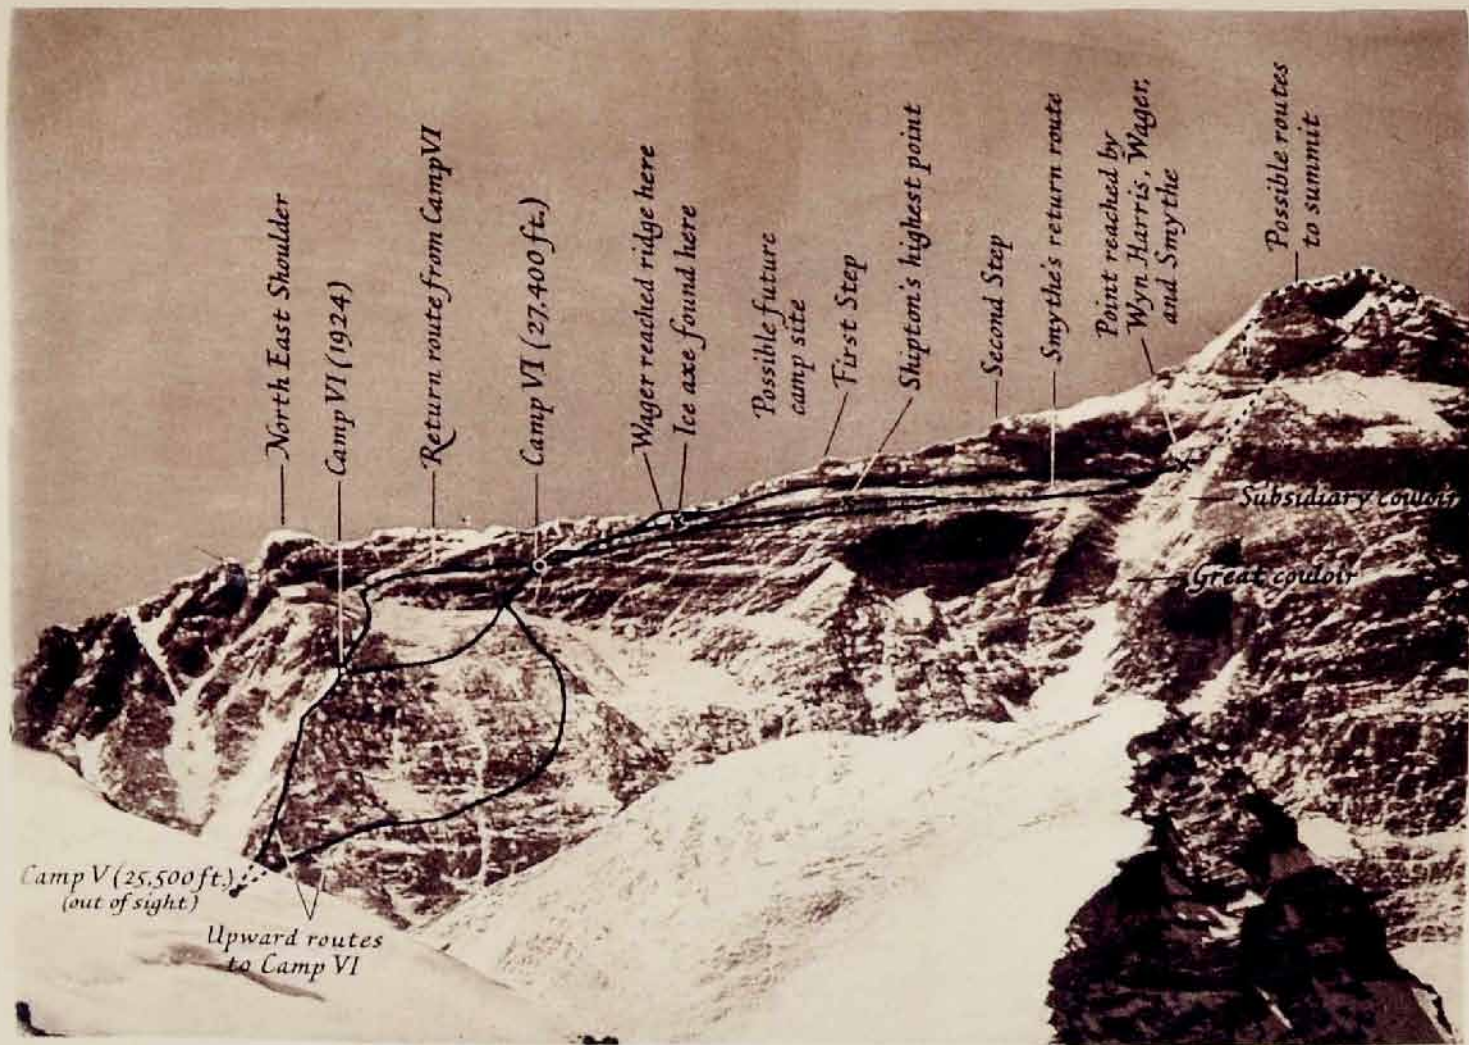 North East Shoulder
Camp VI (1924)
Return route from Camp VI
Camp VI (27,400 ft.)
Wager reached ridge here
Ice axe found here
Possible future
camp site
First Step
Shipton's highest point
Second Step
Smythe's return route
Point reached by
Wyn Harris, Wager,
and Smythe
Possible routes
to summit
Subsidiary couloir
Great couloir
Camp V (25,500 ft.)
(out of sight)
Upward routes
to Camp VI